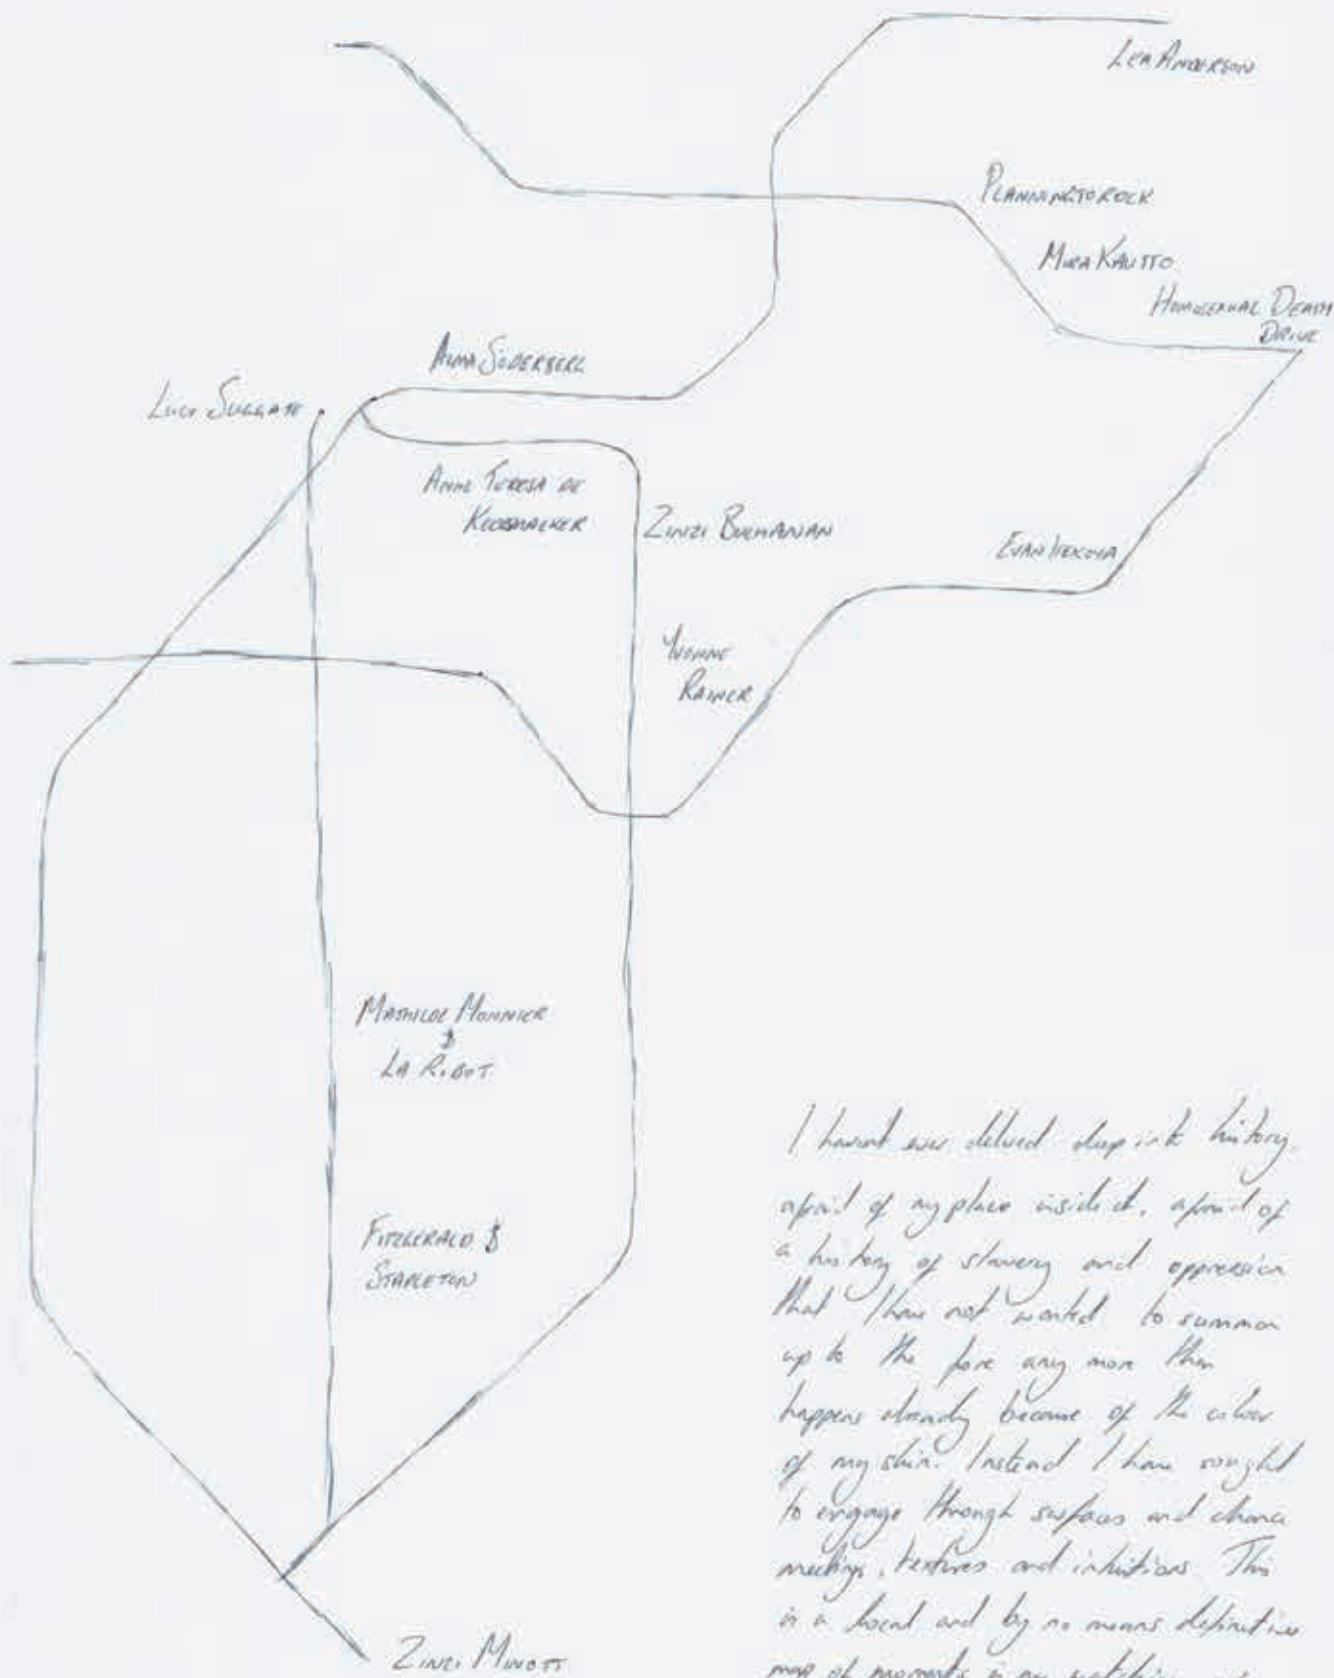 LEA ANDERSON
PLANNINGTOROCK
MIRA KAUTTO
HOMOSEXUAL DEATH
DRIVE
ALMA SÖDERBERG
LUCY SUGGATE
ANNE TERESA DE
KEERSMAEKER
ZINZI BUCHANAN
EVAN IFEKOYA
YVONNE
RAINER
MATHILDE MONNIER
&
LA RIBOT
FITZGERALD &
STAPLETON
ZINZI MINOTT
I havent ever delved deep into history,
afraid of my place inside it, afraid of
a history of slavery and oppression
that I have not wanted to summon
up to the fore any more than
happens already because of the colour
of my skin. Instead I have sought
to engage through surfaces and chance
meetings, textures and intuitions. This
is a and by no means definitive
map of moments in my